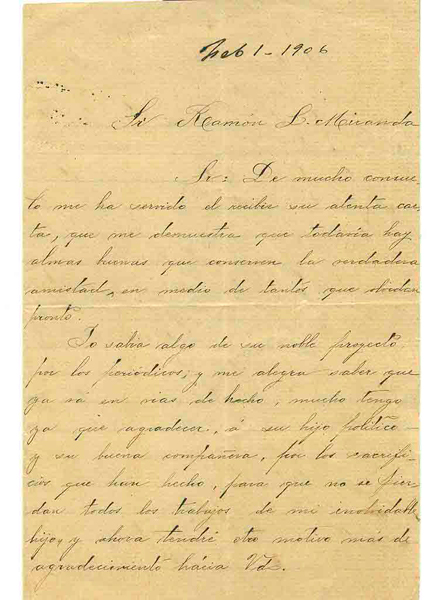 Feb 1 - 1906
Sr Ramón L. Miranda
Sr: De mucho consue-
lo me ha servido el recibir su atenta car-
ta, que me demuestra que todavía hay
almas buenas que conserven la verdadera
amistad, en medio de tantos que olvidan
pronto.
Yo sabia algo de su noble proyecto
por los periódicos, y me alegra saber que
ya vá en vias de hecho, mucho tengo
ya que agradecer, á su hijo político
y su buena compañera, por los sacrifi-
cios que han hecho, para que no se pier-
dan todos los trabajos de mi inolvidable
hijo, y ahora tendré otro motivo más de
agradecimiento hácia Vd.